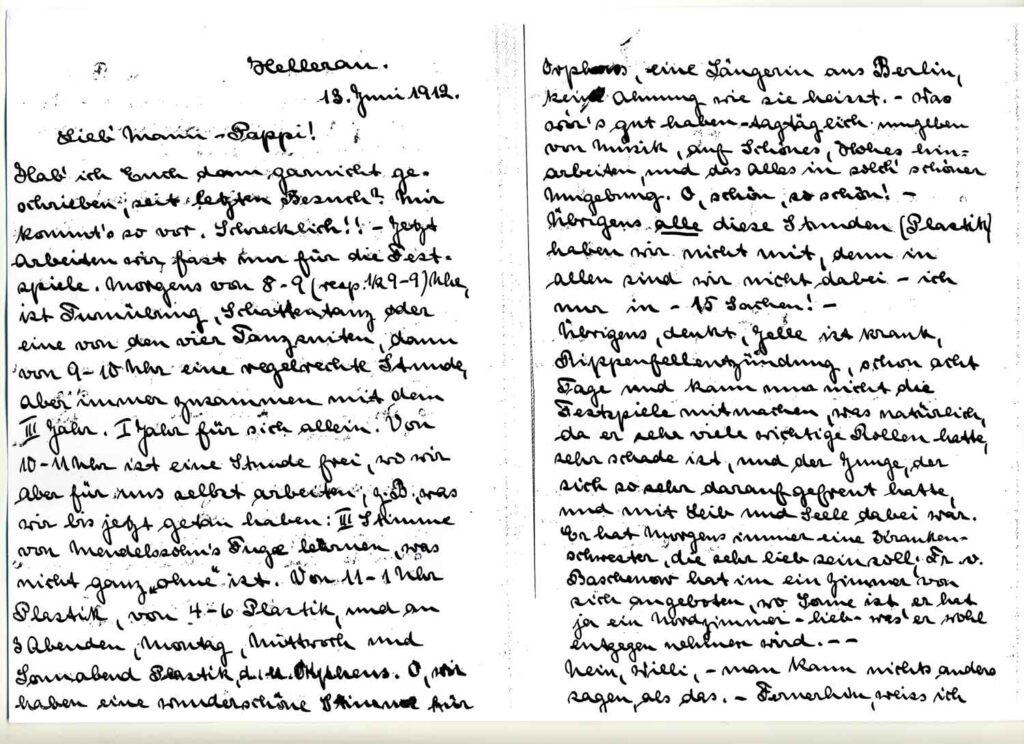 Hellerau.
13. Juni 1912.
Lieb' Mami-Pappi!
Hab' ich Euch denn garnicht ge-
schrieben, seit letzten Besuch? Mir
kommt's so vor. Schrecklich!! - Jetzt
arbeiten wir fast nur für die Fest-
spiele. Morgens von 8-9 (resp. 1/2 9-9) Uhr,
ist Turnübung, Schattentanz oder
eine von den vier Tanzsuiten, dann
von 9-10 Uhr eine regelrechte Stunde,
aber immer zusammen mit dem
III Jahr. I Jahr für sich allein. Von
10-11 Uhr ist eine Stunde frei, wo wir
aber für uns selbst arbeiten, z.B. was
wir bis jetzt getan haben: III Stimme
von Mendelssohn's Fuge lernen, was
nicht ganz „ohne" ist. Von 11-1 Uhr
Plastik, von 4-6 Plastik, und an
3 Abenden, Montag, Mittwoch und
Sonnabend Plastik, d.h. Orpheus. O, wir
haben eine wunderschöne Stimme für
Orpheus, eine Sängerin aus Berlin,
keine Ahnung wie sie heisst. - Was
wir's gut haben - tagtäglich umgeben
von Musik, auf Schönes, Hohes hin-
arbeiten, und das Alles in solch' schöner
Umgebung. O, schön, so schön! -
Übrigens alle diese Stunden (Plastik)
haben wir nicht mit, denn in
allen sind wir nicht dabei - ich
nur in - 15 Sachen! -
Übrigens, denkt, Jelle ist krank,
Rippenfellentzündung, schon acht
Tage und kann nun nicht die
Festspiele mitmachen, was natürlich,
da er sehr viele wichtige Rollen hatte,
sehr schade ist, und der Junge, der
sich so sehr darauf gefreut hatte,
und mit Leib und Seele dabei war.
Er hat Morgens immer eine Kranken-
schwester, die sehr lieb sein soll; Fr. v.
Baschenow hat im ein Zimmer von
sich angeboten, wo Sonne ist, er hat
ja ein Nordzimmer - lieb - was' er wohl
entgegen nehmen wird. --
Nein, Willi, - man kann nichts anders
sagen, als das. - Fernerhin, weiss ich